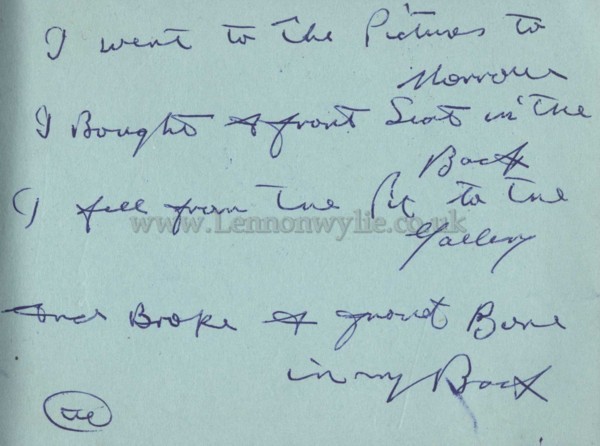 I went to the Pictures to
Morrow
I Bought A front Seat in the
Back
I fell from the Pit to the
www.Lennonwylie.co.uk
Gallery
And Broke A front Bone
in my Back